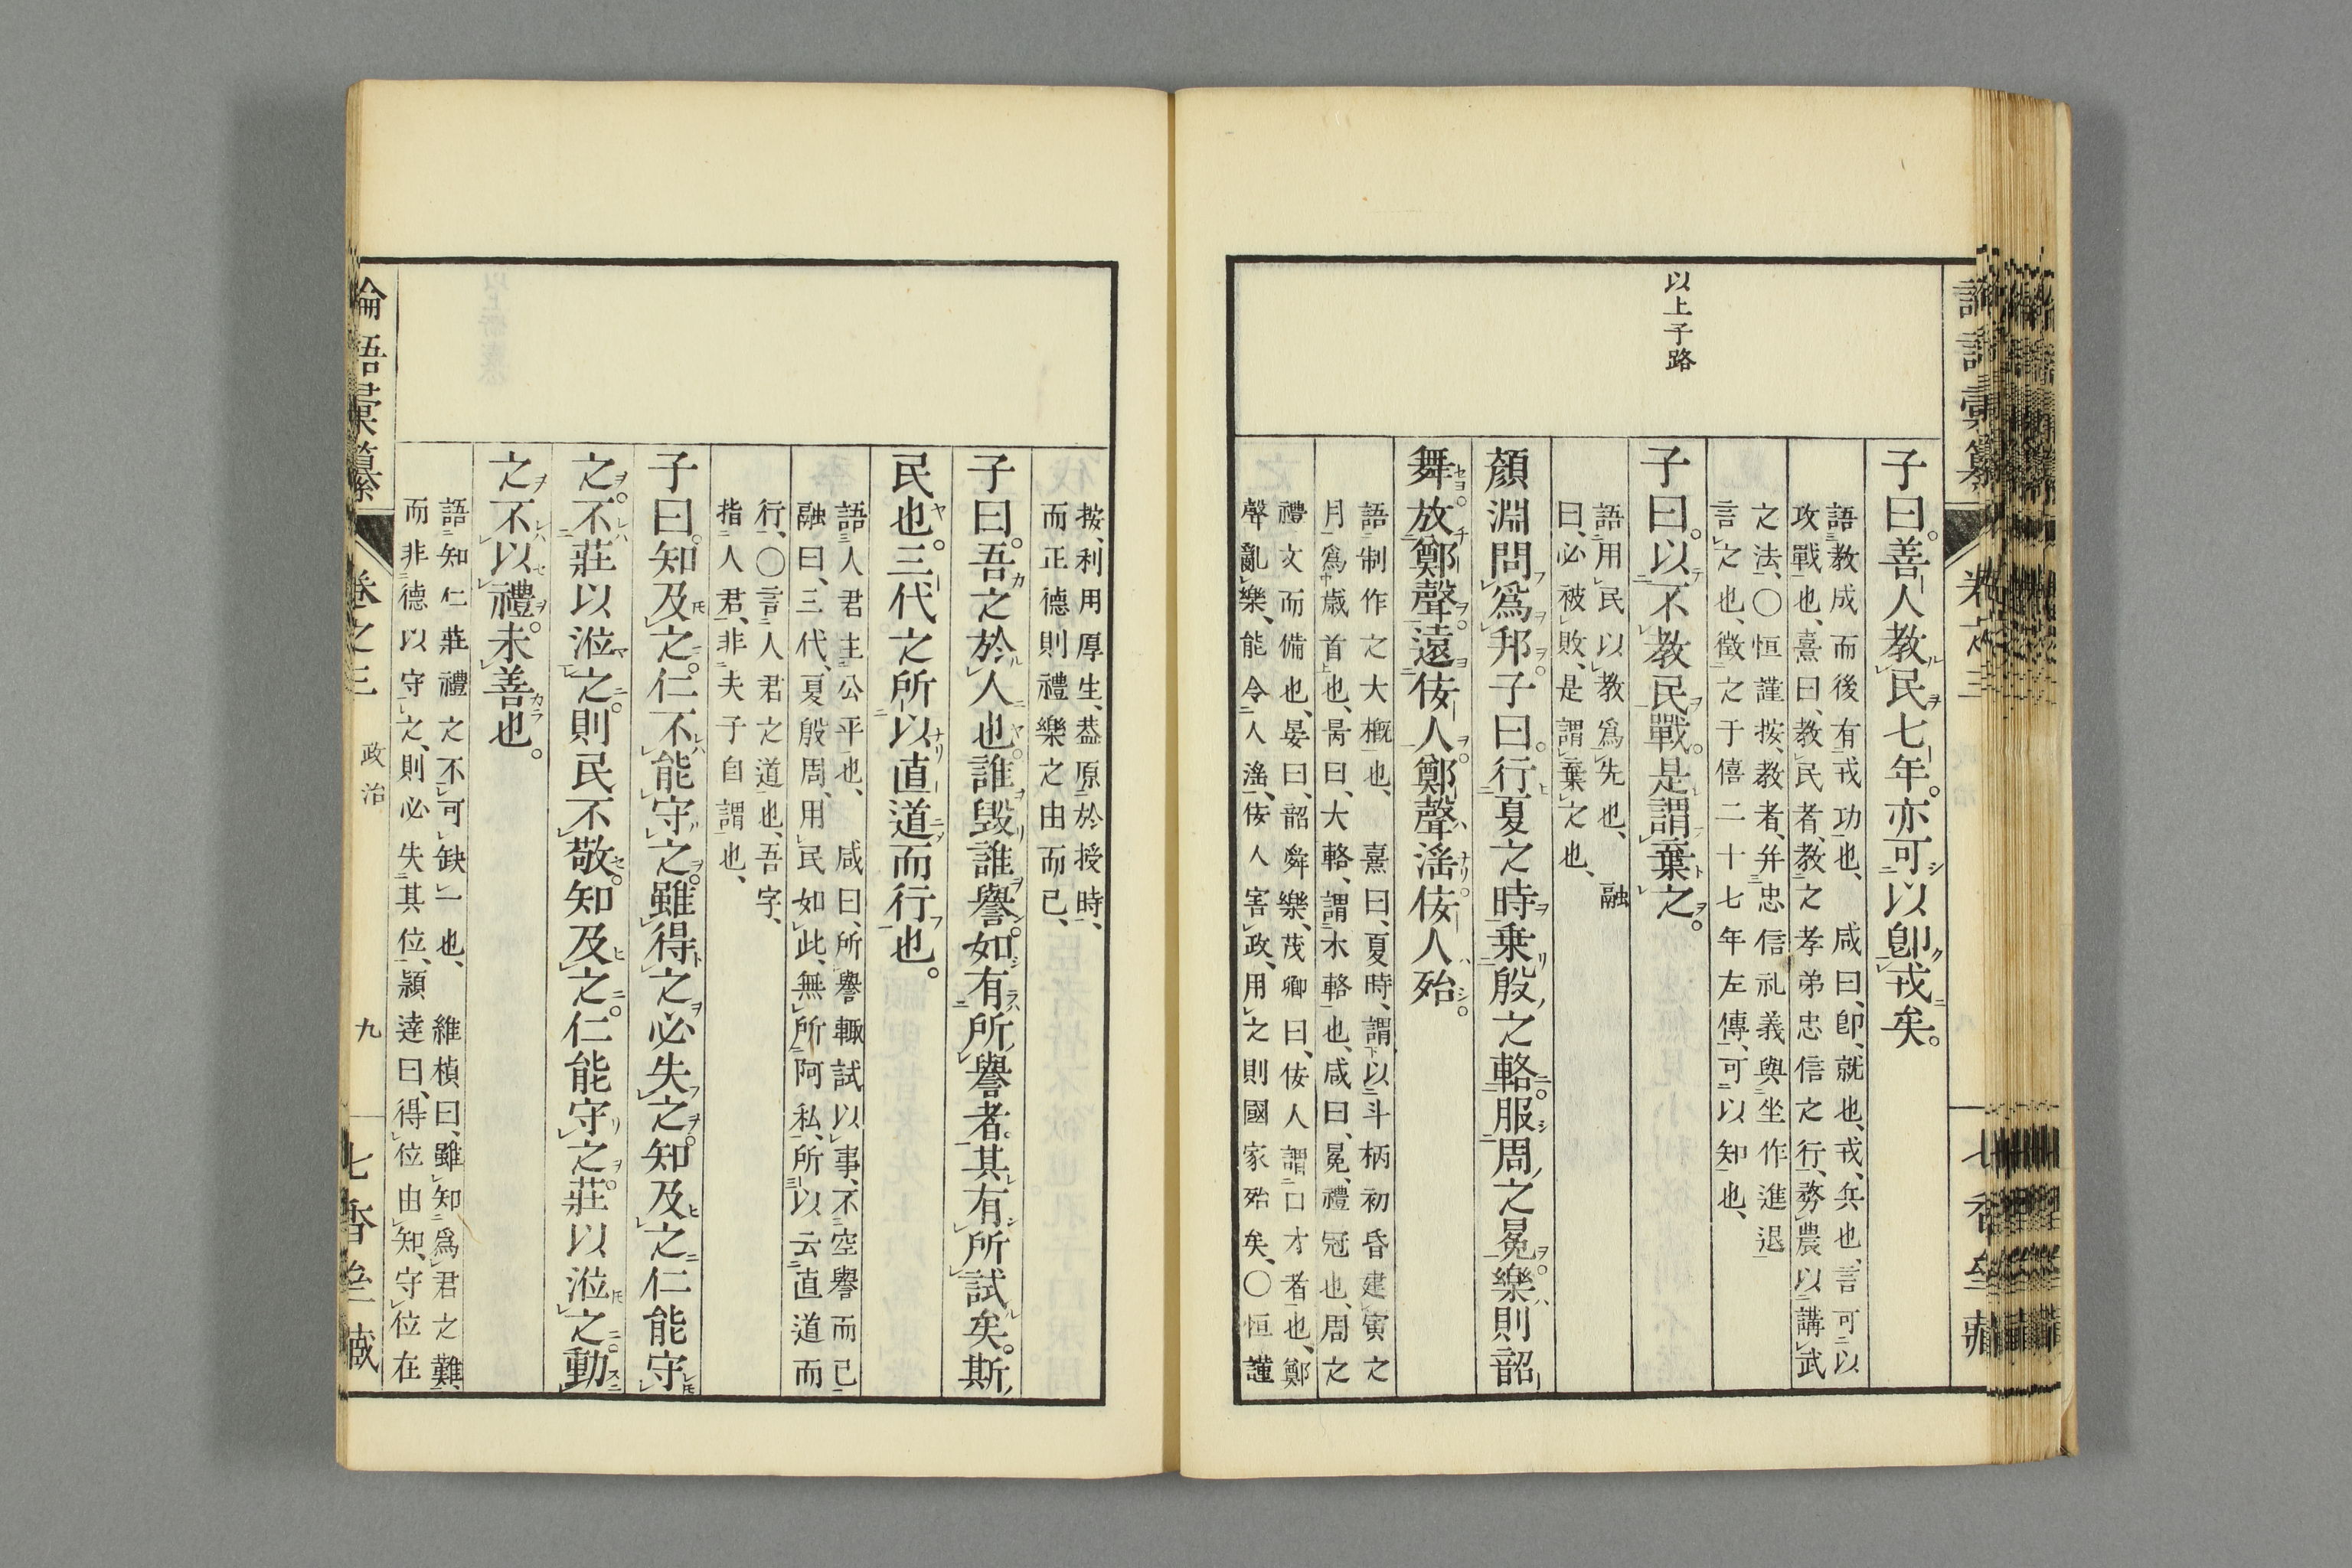 以上子路
子曰。善人教民七年。亦可以卽戎矣。
語教成而後有戎功也、咸曰、卽、就也、戎、兵也、言可以
攻戰也、熹曰、教民者、教之孝弟忠信之行、務農以講武
之法、〇恒謹按、教者、幷忠信礼義與坐作進退
言之也、徵之于僖二十七年左傳、可以知也、
子曰。以不教民戰。是謂棄之。
語用民以教爲先也、融
曰、必被敗、是謂棄之也、
顏淵問爲邦。子曰。行夏之時乗殷之輅。服周之冕。樂則韶
舞。放鄭聲。遠佞人。鄭聲淫。佞人殆。
語制作之大概也、熹曰、夏時、謂以斗柄初昏建寅之
月爲歲首也、昺曰、大輅、謂木輅也、咸曰、冕、禮冠也、周之
禮文而備也、晏曰、韶舜樂、茂卿曰、佞人謂口才者也、鄭
聲亂樂、能令人滛、佞人害政、用之則國家殆矣、〇恒謹
按、利用厚生、葢原於授時、
而正德則禮樂之由而已、
子曰。吾之於人也。誰毀誰譽。如有所譽者。其有所試矣。斯
民也。三代之所以直道而行也。
語人君主公平也、咸曰、所譽輙試以事、不空譽而已
融曰、三代、夏殷周、用民如此、無所阿私、所以云直道而
行、〇言人君之道也、吾字、
指人君、非夫子自謂也、
子曰。知及之。仁不能守之。雖得之必失之。知及之仁能守
之。不莊以涖之。則民不敬。知及之。仁能守之。莊以涖之。動
之不以禮。未善也。
語知仁莊禮之不可缺一也、維楨曰、雖知爲君之難、
而非德以守之、則必失其位、潁達曰、得位由知、守位在
論語彙纂 卷之三 政治 九 七香𡋯藏